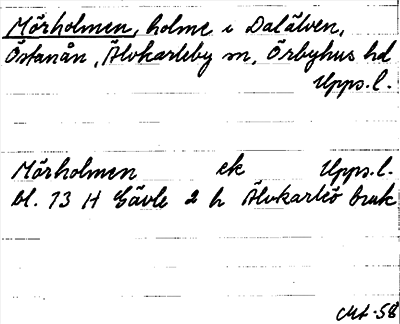 Mörholmen, holme i Dalälven,
Östanån, Älvkarleby sn, Örbyhus hd
Upps. l.
Mörholmen ek Upps. l.
bl. 13 H Gävle 2 h Älvkarleö bruk
Mt -58